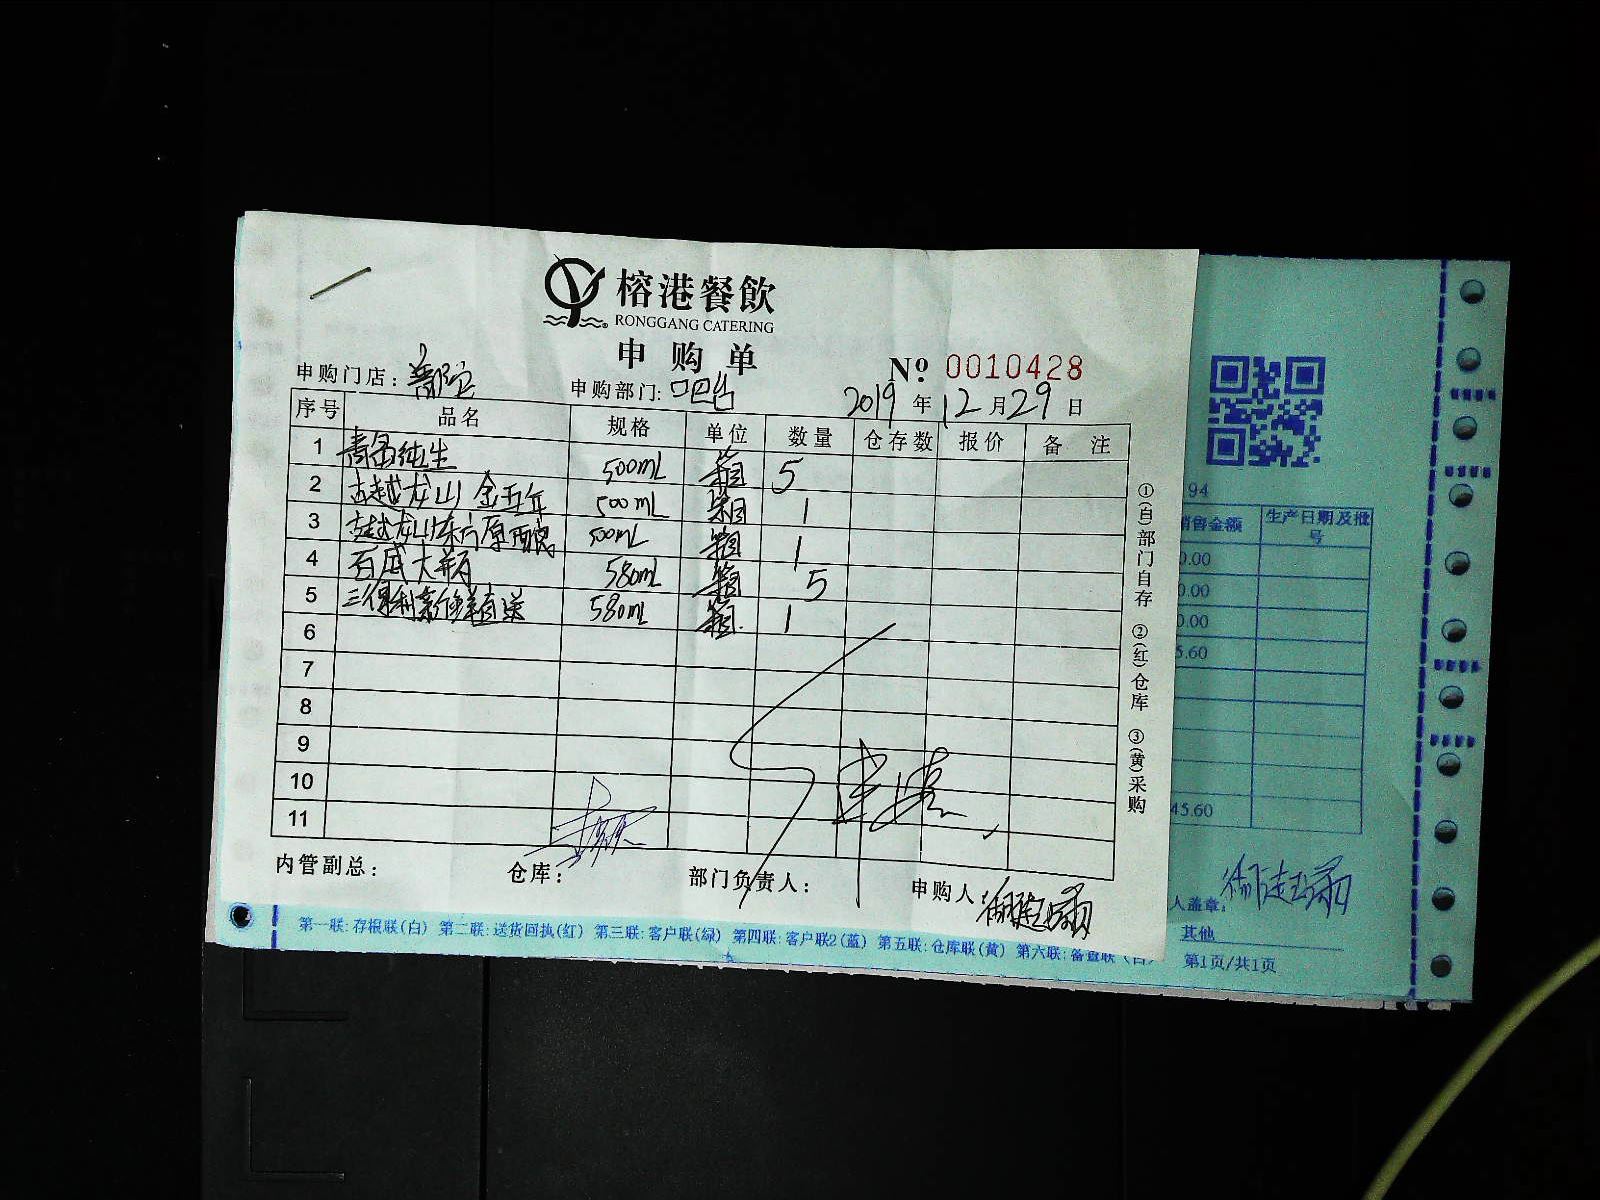 榕港餐飲
RONGGANG CATERING
申购单
№ 0010428
申购门店: 普陀 申购部门: 吧台 2019年12月29日
序号 品名 规格 单位 数量 仓存数 报价 备 注
1 青岛纯生 500mL 箱 5
2 古越龙山 金五年 500mL 箱 1
3 古越龙山东方原酿 500mL 箱 1
4 百威大瓶 580mL 箱 5
5 三得利新鲜直送 580mL 箱 1
6
7
8
9
10
11
内管副总: 仓库: 部门负责人: 申购人:
①(白)部门自存 ②(红)仓库 ③(黄)采购
94
销售金额 生产日期及批号
0.00
0.00
0.00
5.60
45.60
人盖章:
其他
第一联:存根联(白) 第二联:送货回执(红) 第三联:客户联(绿) 第四联:客户联2(蓝) 第五联:仓库联(黄) 第六联:备查联(白) 第1页/共1页